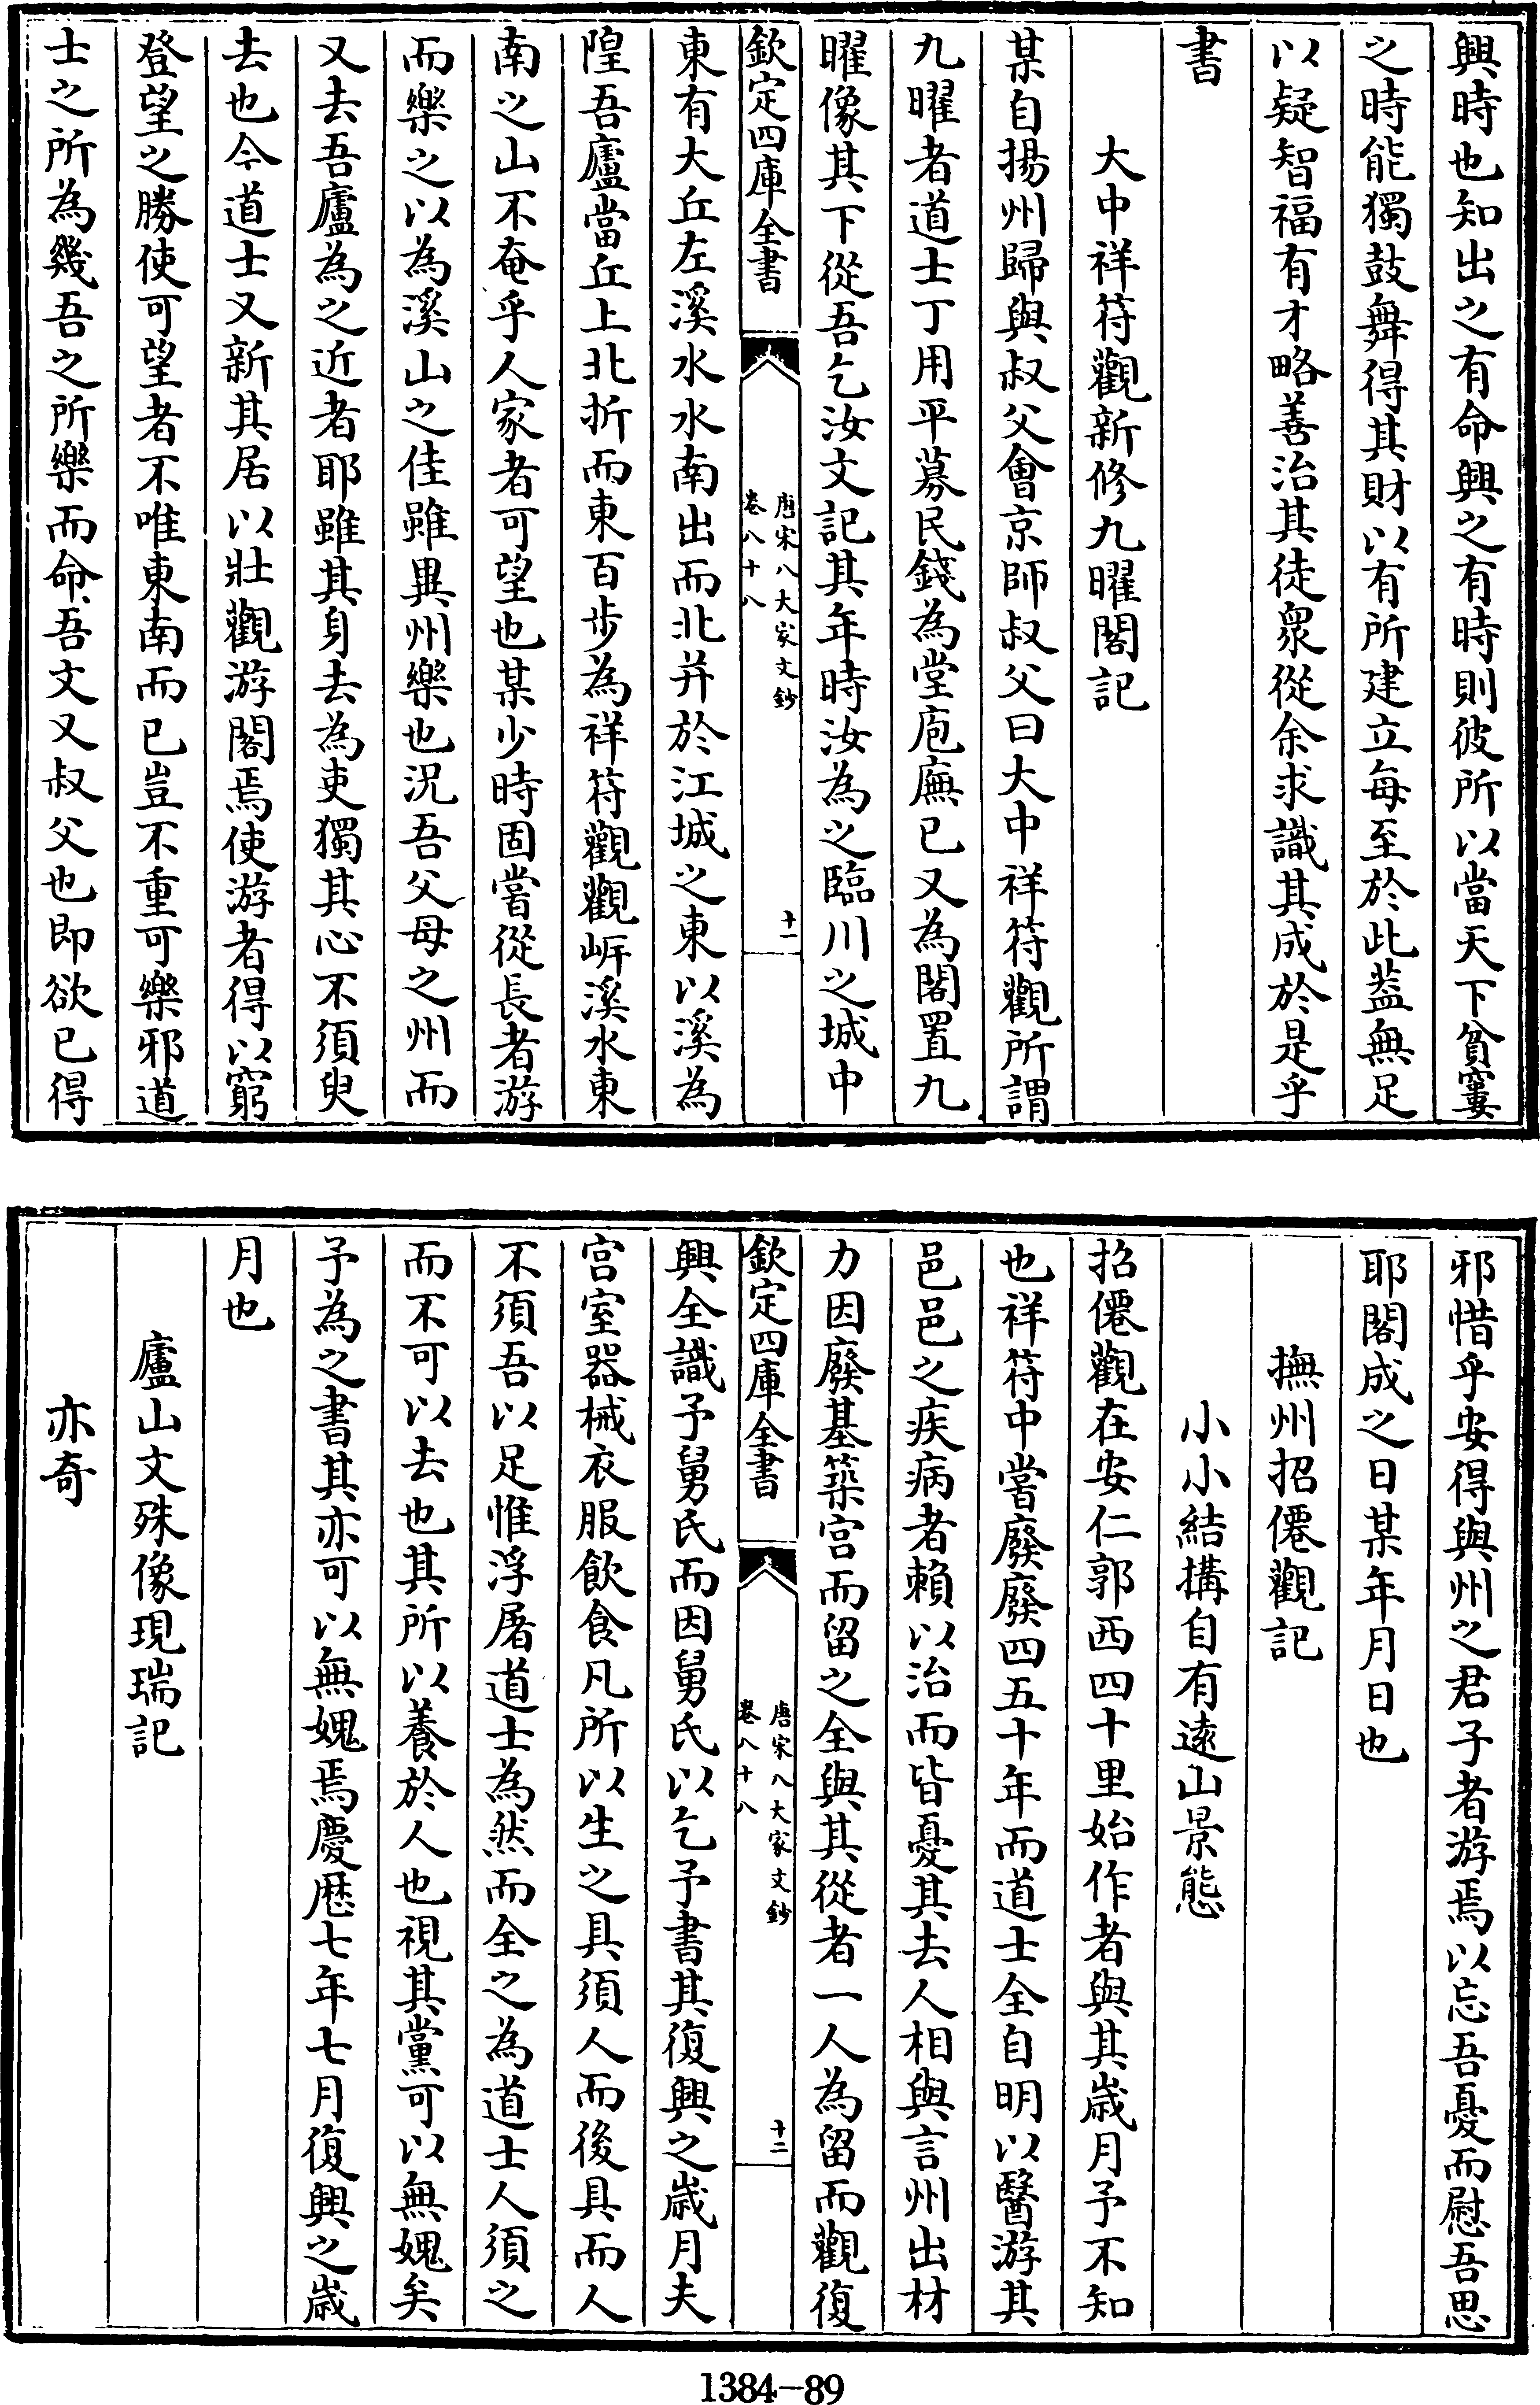 興時也知出之有命興之有時則彼所以當天下貧窶
之時能獨鼓舞得其財以有所建立每至於此葢無足
以疑智福有才略善治其徒衆從余求識其成於是乎
書
大中祥符觀新修九曜閣記
某自揚州歸與叔父會京師叔父曰大中祥符觀所謂
九曜者道士丁用平募民錢為堂庖廡已又為閣置九
曜像其下從吾乞汝文記其年時汝為之臨川之城中
欽定四庫全書
唐宋八大家文鈔
卷八十八
十一
東有大丘左溪水水南出而北并於江城之東以溪為
隍吾廬當丘上北折而東百步為祥符觀觀㟁溪水東
南之山不奄乎人家者可望也某少時固嘗從長者游
而樂之以為溪山之佳雖異州樂也況吾父母之州而
又去吾廬為之近者耶雖其身去為吏獨其心不須臾
去也今道士又新其居以壯觀游閣焉使游者得以窮
登望之勝使可望者不唯東南而已豈不重可樂邪道
士之所為幾吾之所樂而命吾文又叔父也即欲已得
邪惜乎安得與州之君子者游焉以忘吾憂而慰吾思
耶閣成之日某年月日也
撫州招僊觀記
小小結搆自有遠山景態
招僊觀在安仁郭西四十里始作者與其歲月予不知
也祥符中嘗廢廢四五十年而道士全自明以醫游其
邑邑之疾病者賴以治而皆憂其去人相與言州出材
力因廢基築宫而留之全與其從者一人為留而觀復
欽定四庫全書
唐宋八大家文鈔
卷八十八
十二
興全識予舅氏而因舅氏以乞予書其復興之歲月夫
宫室器械衣服飲食凡所以生之具須人而後具而人
不須吾以足惟浮屠道士為然而全之為道士人須之
而不可以去也其所以養於人也視其黨可以無媿矣
予為之書其亦可以無媿焉慶厯七年七月復興之歲
月也
廬山文殊像現瑞記
亦奇
1384-89